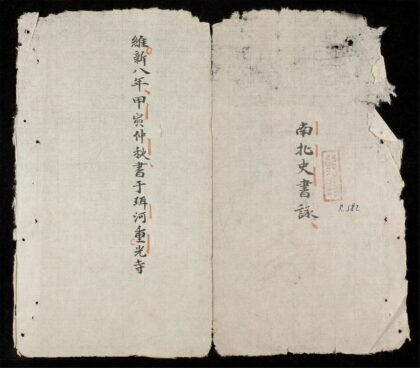 南北史書詠
維新八年甲寅仲秋書于珥河重光寺